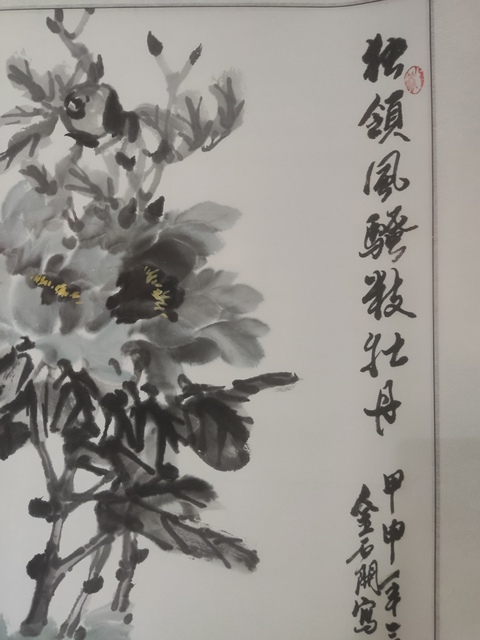 独領風騷數牡丹
甲申年二
金石開寫